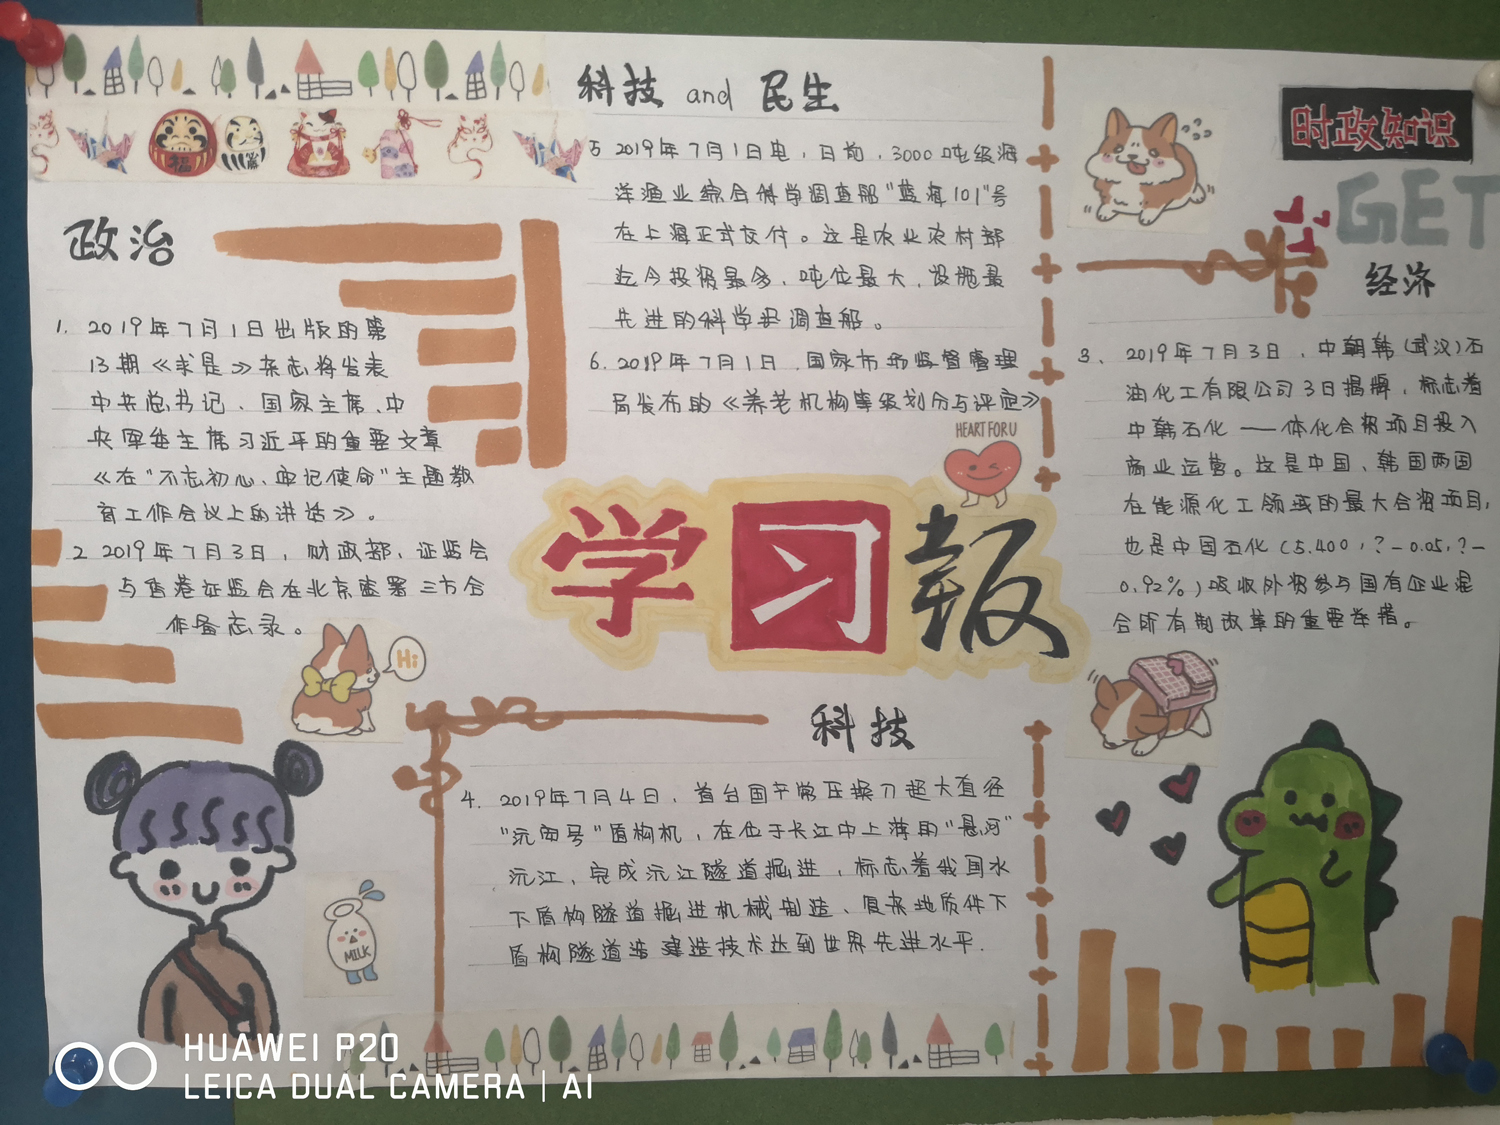 政治
1. 2019年7月1日出版的第
13期《求是》杂志将发表
中共总书记、国家主席、中
央军委主席习近平的重要文章
《在"不忘初心、牢记使命"主题教
育工作会议上的讲话》。
2 2019年7月3日，财政部、证监会
与香港证监会在北京签署三方合
作备忘录。
Hi
MILK
科技 and 民生
5 2019年7月1日电，日前，3000吨级海
洋渔业综合科学调查船"蓝海101"号
在上海正式交付。这是农业农村部
迄今投资最多，吨位最大，设施最
先进的科学考调查船。
6. 2019年7月1日，国家市场监督管理
局发布的《养老机构等级划分与评定》
HEART FOR U
学习报
科技
4. 2019年7月4日，首台国产常压换刀超大直径
"沅安号"盾构机，在位于长江中上游的"悬河"
沅江，完成沅江隧道掘进，标志着我国水
下盾构隧道掘进机械制造、复杂地质件下
盾构隧道建造技术达到世界先进水平.
时政知识
GET
经济
3、2019年7月3日，中朝韩(武汉)石
油化工有限公司3日揭牌，标志着
中韩石化 一体化合资项目投入
商业运营。这是中国、韩国两国
在能源化工领域的最大合资项目，
也是中国石化(5.400，?-0.05，?-
0.92%)吸收外资参与国有企业混
合所有制改革的重要举措。
HUAWEI P20
LEICA DUAL CAMERA | AI